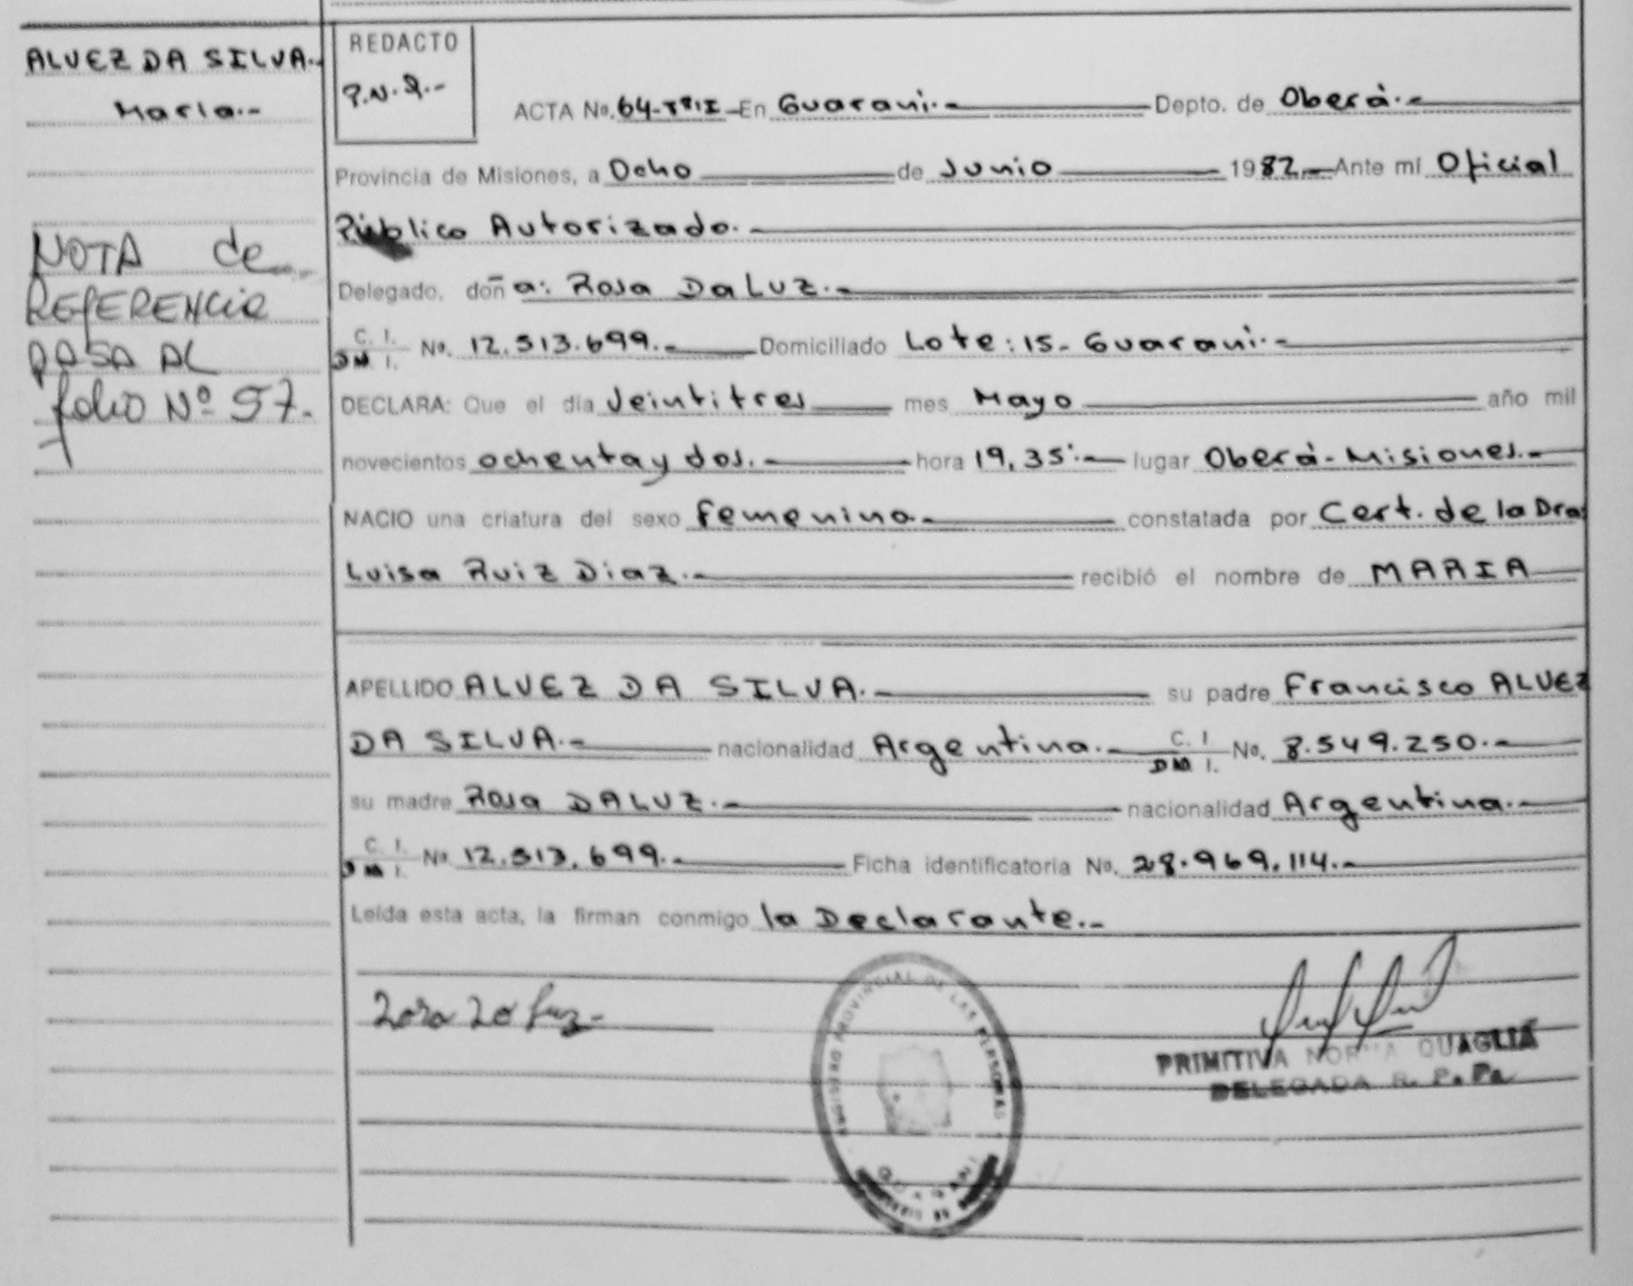 ALVEZ DA SILVA.-
Maria.-
NOTA de
REFERENCIA
PASA AL
folio Nº 57.
REDACTO
P.N.Q.-
ACTA No. 64-TºI-En Guarani.- Depto. de Oberà.-
Provincia de Misiones, a Ocho de Junio 1982.- Ante mí Oficial
Público Autorizado.-
Delegado, doña: Rosa DaLUZ.-
C. I. No. 12.513.699.- Domiciliado Lote:15-Guarani.-
D M I.
DECLARA: Que el día Veintitres mes Mayo año mil
novecientos ochenta y dos.- hora 19,35'.- lugar Oberà-Misiones.-
NACIO una criatura del sexo Femenino.- constatada por Cert. de la Dra
Luisa Ruiz Diaz.- recibió el nombre de MARIA
APELLIDO ALVEZ DA SILVA.- su padre Francisco ALVEZ
DA SILVA.- nacionalidad Argentina.- C. I. No. 8.549.250.-
D M I.
su madre Rosa DALUZ.- nacionalidad Argentina.-
C. I. No. 12.513.699.- Ficha identificatoria No. 28.969.114.-
D M I.
Leída esta acta, la firman conmigo la Declarante.-
REGISTRO PROVINCIAL DE LAS PERSONAS
GUARANI
PRIMITIVA NORMA QUAGLIA
DELEGADA R. P. Ps